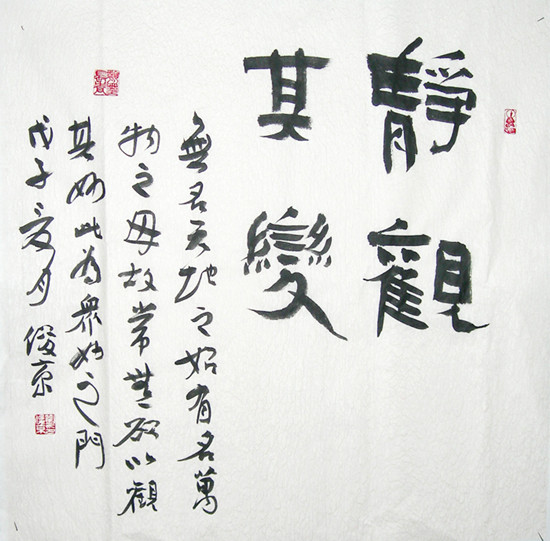 靜觀
其變
無名天地之始有名萬
物之母故常無欲以觀
其妙此為衆妙之門
戊子夏月俊京